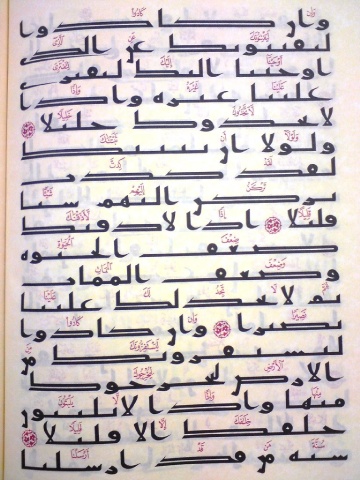 وان كادوا
ليفتنونك عن الذي
اوحينا اليك لتفتري
علينا غيره واذا
لاتخذوك خليلا
ولولا ان ثبتنك
لقد كدت
تركن اليهم شيا
قليلا اذا لاذقنك
ضعف الحيوه
وضعف الممات
ثم لا تجد لك علينا
نصيرا وان كادوا
ليستفزونك من
الارض ليخرجوك
منها واذا لا يلبثون
خلفك الا قليلا
سنه من قد ارسلنا